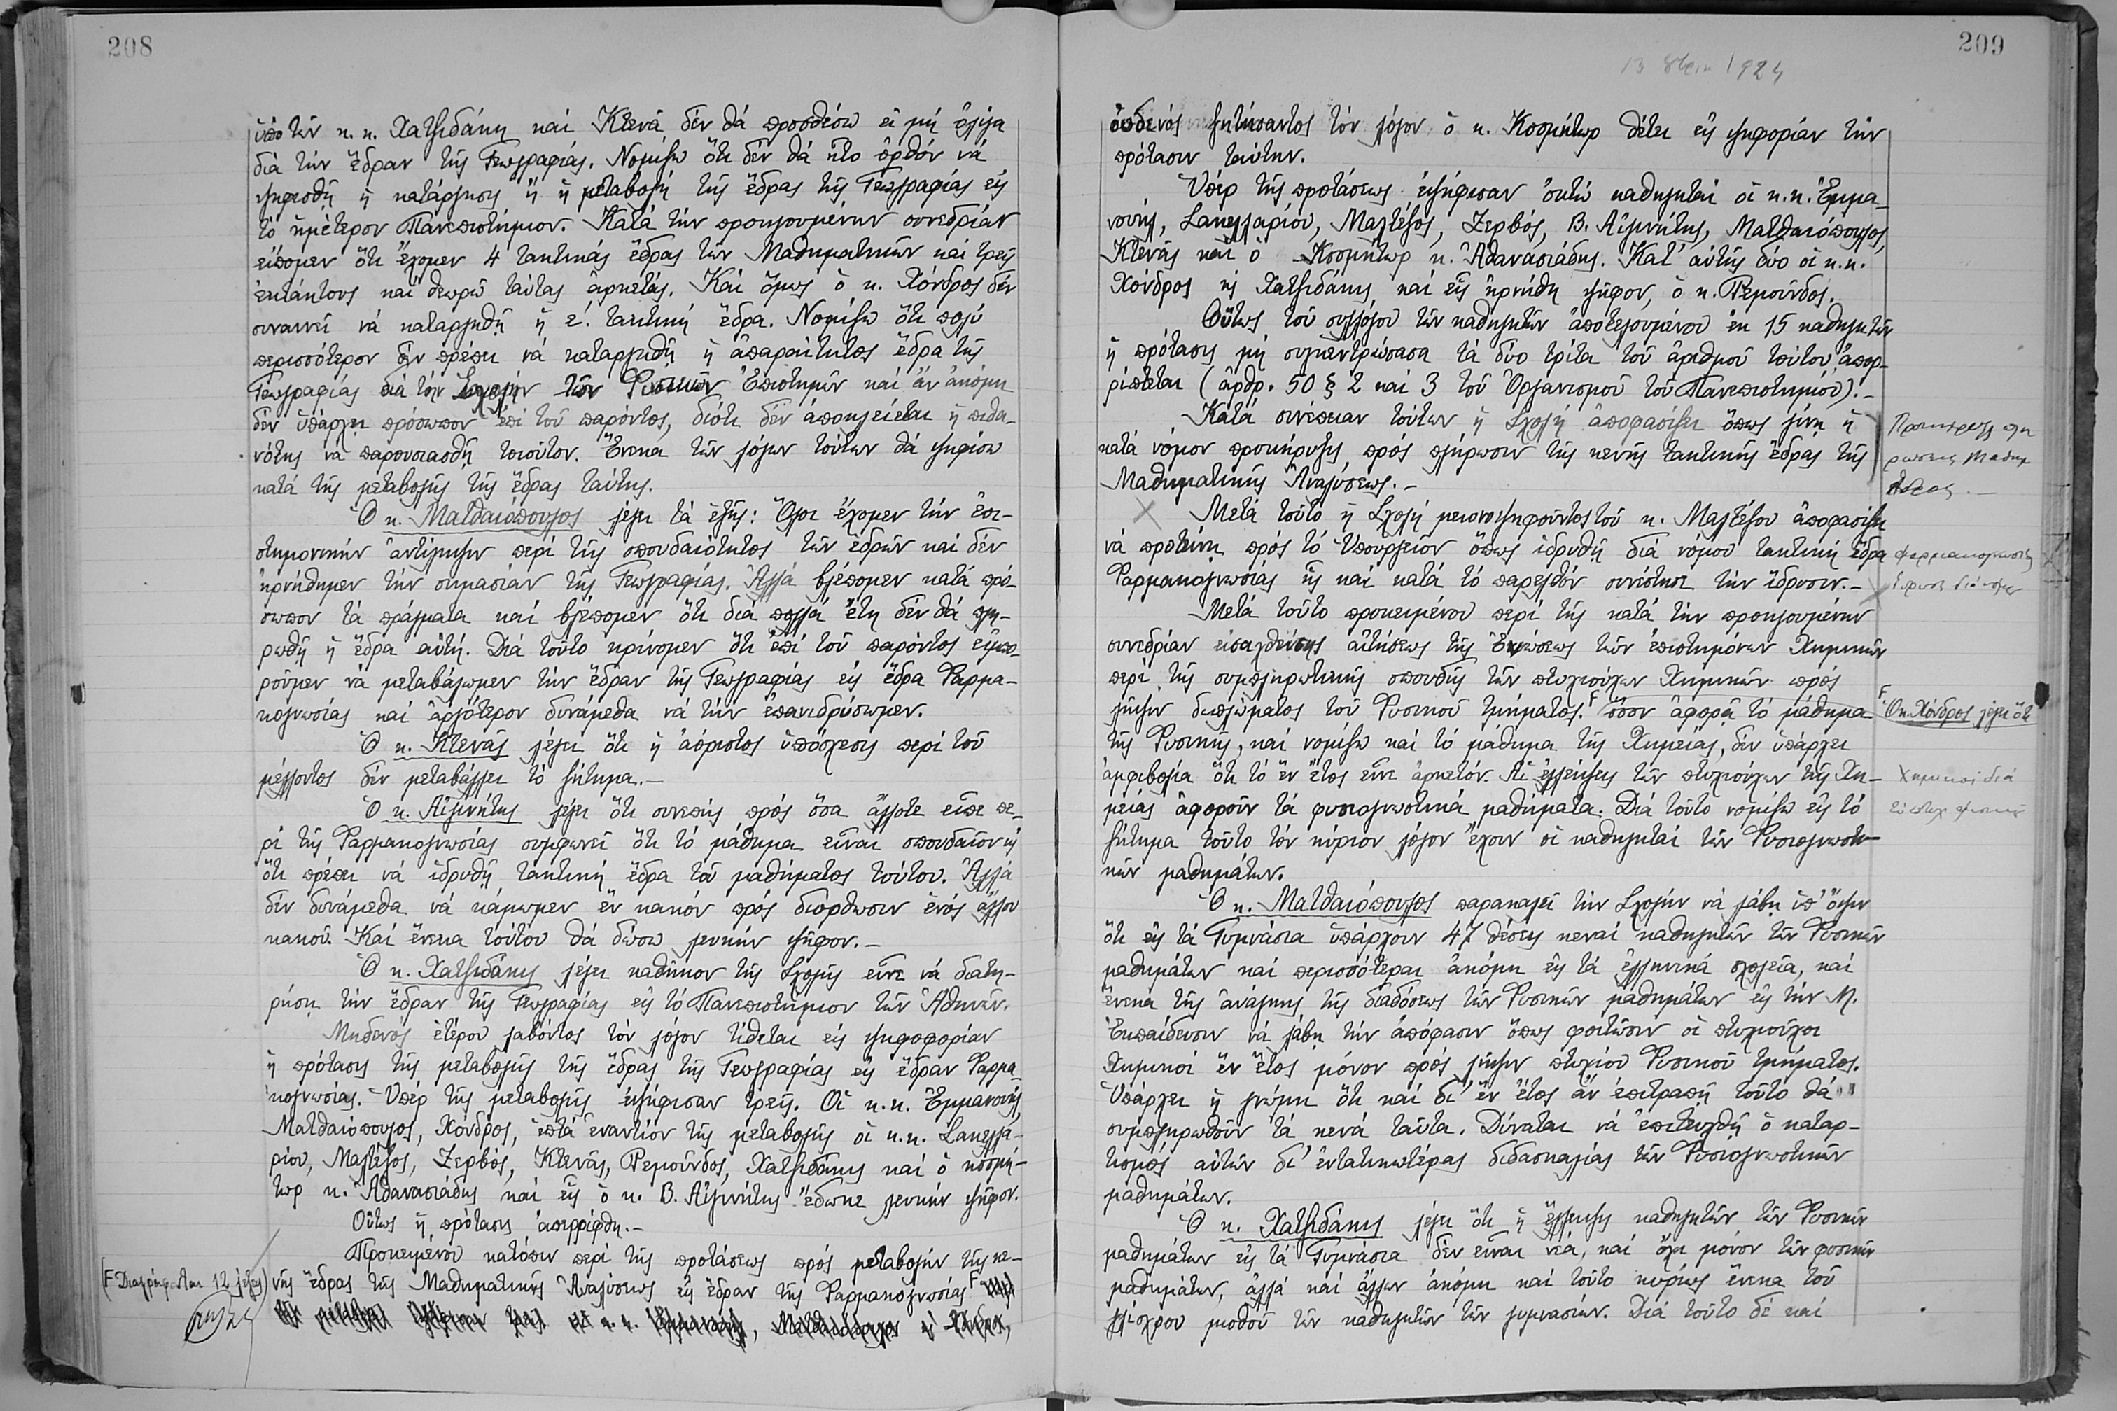 208
ὑπὸ τῶν κ. κ. Χατζιδάκη καὶ Κτενᾶ δὲν θὰ προσθέσω εἰ μὴ ὀλίγα
διὰ τὴν ἕδραν τῆς Γεωγραφίας. Νομίζω ὅτι δὲν θὰ ἦτο ὀρθὸν νὰ
ψηφισθῇ ἡ κατάργησις ἢ ἡ μεταβολὴ τῆς ἕδρας τῆς Γεωγραφίας εἰς
τὸ ἡμέτερον Πανεπιστήμιον. Κατὰ τὴν προηγουμένην συνεδρίαν
εἴπομεν ὅτι ἔχομεν 4 τακτικὰς ἕδρας τῶν Μαθηματικῶν καὶ τρεῖς
ἐκτάκτους καὶ θεωρῶ ταύτας ἀρκετάς. Καὶ ὅμως ὁ κ. Χόνδρος δὲν
συναινεῖ νὰ καταργηθῇ ἡ ε΄. τακτικὴ ἕδρα. Νομίζω ὅτι πολὺ
περισσότερον δὲν πρέπει νὰ καταργηθῇ ἡ ἀπαραίτητος ἕδρα τῆς
Γεωγραφίας διὰ τὴν Σχολὴν τῶν Φυσικῶν Ἐπιστημῶν καὶ ἂν ἀκόμη
δὲν ὑπάρχῃ πρόσωπον ἐπὶ τοῦ παρόντος, διότι δὲν ἀποκλείεται ἡ πιθα-
νότης νὰ παρουσιασθῇ τοιοῦτον. Ἕνεκα τῶν λόγων τούτων θὰ ψηφίσω
κατὰ τῆς μεταβολῆς τῆς ἕδρας ταύτης.
Ὁ κ. Ματθαιόπουλος λέγει τὰ ἑξῆς: Ὅλοι ἔχομεν τὴν ἐπι-
στημονικὴν ἀντίληψιν περὶ τῆς σπουδαιότητος τῶν ἑδρῶν καὶ δὲν
ἠρνήθημεν τὴν σημασίαν τῆς Γεωγραφίας. Ἀλλὰ βλέπομεν κατὰ πρό-
σωπον τὰ πράγματα καὶ βλέπομεν ὅτι διὰ πολλὰ ἔτη δὲν θὰ πλη-
ρωθῇ ἡ ἕδρα αὐτή. Διὰ τοῦτο κρίνομεν ὅτι ἐπὶ τοῦ παρόντος εἰμπο-
ροῦμεν νὰ μεταβάλωμεν τὴν ἕδραν τῆς Γεωγραφίας εἰς ἕδρα Φαρμα-
κογνωσίας καὶ ἀργότερον δυνάμεθα νὰ τὴν ἐπανιδρύσωμεν.
Ὁ κ. Κτενᾶς λέγει ὅτι ἡ ἀόριστος ὑπόσχεσις περὶ τοῦ
μέλλοντος δὲν μεταβάλλει τὸ ζήτημα.—
Ὁ κ. Αἰγινήτης λέγει ὅτι συνεπὴς πρὸς ὅσα ἄλλοτε εἶπε πε-
ρὶ τῆς Φαρμακογνωσίας συμφωνεῖ ὅτι τὸ μάθημα εἶναι σπουδαῖον ϗ
ὅτι πρέπει νὰ ἱδρυθῇ τακτικὴ ἕδρα τοῦ μαθήματος τούτου. Ἀλλὰ
δὲν δυνάμεθα νὰ κάμωμεν ἓν κακὸν πρὸς διόρθωσιν ἑνὸς ἄλλου
κακοῦ. Καὶ ἕνεκα τούτου θὰ δώσω λευκὴν ψῆφον.—
Ὁ κ. Χατζιδάκης λέγει καθῆκον τῆς Σχολῆς εἶνε νὰ διατη-
ρήσῃ τὴν ἕδραν τῆς Γεωγραφίας εἰς τὸ Πανεπιστήμιον τῶν Ἀθηνῶν.
Μηδενὸς ἑτέρου λαβόντος τὸν λόγον τίθεται εἰς ψηφοφορίαν
ἡ πρότασις τῆς μεταβολῆς τῆς ἕδρας τῆς Γεωγραφίας εἰς ἕδραν Φαρμα-
κογνωσίας. Ὑπὲρ τῆς μεταβολῆς ἐψήφισαν τρεῖς. Οἱ κ.κ. Ἐμμανουήλ,
Ματθαιόπουλος, Χόνδρος, ἑπτὰ ἐναντίον τῆς μεταβολῆς οἱ κ.κ. Σακελλα-
ρίου, Μαλτέζος, Ζερβός, Κτενᾶς, Ρεμοῦνδος, Χατζιδάκης καὶ ὁ κοσμή-
τωρ κ. Ἀθανασιάδης καὶ εἷς ὁ κ. Β. Αἰγινήτης ἔδωκε λευκὴν ψῆφον.
Οὕτως ἡ πρότασις ἀπερρίφθη.—
Προκειμένου κατόπιν περὶ τῆς προτάσεως πρὸς μεταβολὴν τῆς κε-
νῆς ἕδρας τῆς Μαθηματικῆς Ἀναλύσεως εἰς ἕδραν τῆς Φαρμακογνωσίας
Διαγράφονται 12 λέξεις
209
13 1924
οὐδενὸς ζητήσαντος τὸν λόγον ὁ κ. Κοσμήτωρ θέτει εἰς ψηφορίαν τὴν
πρότασιν ταύτην.
Ὑπὲρ τῆς προτάσεως ἐψήφισαν ὀκτὼ καθηγηταὶ οἱ κ.κ. Ἐμμα-
νουήλ, Σακελλαρίου, Μαλτέζος, Ζερβός, Β. Αἰγινήτης, Ματθαιόπουλος,
Κτενᾶς καὶ ὁ Κοσμήτωρ κ. Ἀθανασιάδης. Κατ' αὐτῆς δύο οἱ κ.κ.
Χόνδρος ϗ Χατζιδάκης καὶ εἷς ἠρνήθη ψῆφον, ὁ κ. Ρεμοῦνδος.
Οὕτως τοῦ συλλόγου τῶν καθηγητῶν ἀποτελουμένου ἐκ 15 καθηγητῶν
ἡ πρότασις μὴ συγκεντρώσασα τὰ δύο τρίτα τοῦ ἀριθμοῦ τούτου ἀπορ-
ρίπτεται (ἄρθρ. 50 § 2 καὶ 3 τοῦ Ὀργανισμοῦ τοῦ Πανεπιστημίου).—
Κατὰ συνέπειαν τούτων ἡ Σχολὴ ἀποφασίζει ὅπως γίνῃ ἡ
κατὰ νόμον προκήρυξις πρὸς πλήρωσιν τῆς κενῆς τακτικῆς ἕδρας τῆς
Μαθηματικῆς Ἀναλύσεως.—
Μετὰ τοῦτο ἡ Σχολὴ μειονοψηφοῦντος τοῦ κ. Μαλτέζου ἀποφασίζει
νὰ προτείνῃ πρὸς τὸ Ὑπουργεῖον ὅπως ἱδρυθῇ διὰ νόμου τακτικὴ ἕδρα
Φαρμακογνωσίας ἧς καὶ κατὰ τὸ παρελθὸν συνέστησε τὴν ἵδρυσιν.—
Μετὰ τοῦτο προκειμένου περὶ τῆς κατὰ τὴν προηγουμένην
συνεδρίαν εἰσαχθείσης αἰτήσεως τῆς Ἑνώσεως τῶν ἐπιστημόνων Χημικῶν
περὶ τῆς συμπληρωτικῆς σπουδῆς τῶν πτυχιούχων Χημικῶν πρὸς
λῆψιν διπλώματος τοῦ Φυσικοῦ τμήματος. ὅσον ἀφορᾷ τὸ μάθημα
Ὁ κ. Χόνδρος λέγει ὅτι
τῆς Φυσικῆς, καὶ νομίζω καὶ τὸ μάθημα τῆς Χημείας, δὲν ὑπάρχει
ἀμφιβολία ὅτι τὸ ἓν ἔτος εἶνε ἀρκετόν. Αἱ ἐλλείψεις τῶν πτυχιούχων τῆς Χη-
μείας ἀφοροῦν τὰ φυσιογνωστικὰ μαθήματα. Διὰ τοῦτο νομίζω εἰς τὸ
ζήτημα τοῦτο τὸν κύριον λόγον ἔχουν οἱ καθηγηταὶ τῶν Φυσιογνωστι-
κῶν μαθημάτων.
Ὁ κ. Ματθαιόπουλος παρακαλεῖ τὴν Σχολὴν νὰ λάβῃ ὑπ' ὄψιν
ὅτι εἰς τὰ Γυμνάσια ὑπάρχουν 47 θέσεις κεναὶ καθηγητῶν τῶν Φυσικῶν
μαθημάτων καὶ περισσότεραι ἀκόμη εἰς τὰ ἑλληνικὰ σχολεῖα, καὶ
ἕνεκα τῆς ἀνάγκης τῆς διαδόσεως τῶν Φυσικῶν μαθημάτων εἰς τὴν Μ.
Ἐκπαίδευσιν νὰ λάβῃ τὴν ἀπόφασιν ὅπως φοιτῶσιν οἱ πτυχιοῦχοι
Χημικοὶ ἓν ἔτος μόνον πρὸς λῆψιν πτυχίου Φυσικοῦ τμήματος.
Ὑπάρχει ἡ γνώμη ὅτι καὶ δι' ἓν ἔτος ἂν ἐπιτραπῇ τοῦτο θὰ
συμπληρωθοῦν τὰ κενὰ ταῦτα. Δύναται νὰ ἐπιτευχθῇ ὁ καταρ-
τισμὸς αὐτῶν δι' ἐντατικωτέρας διδασκαλίας τῶν Φυσιογνωστικῶν
μαθημάτων.
Ὁ κ. Χατζιδάκης λέγει ὅτι ἡ ἔλλειψις καθηγητῶν τῶν Φυσικῶν
μαθημάτων εἰς τὰ Γυμνάσια δὲν εἶναι νέα, καὶ ὄχι μόνον τῶν φυσικῶν
μαθημάτων, ἀλλὰ καὶ ἄλλων ἀκόμη καὶ τοῦτο κυρίως ἕνεκα τοῦ
γλίσχρου μισθοῦ τῶν καθηγητῶν τῶν γυμνασίων. Διὰ τοῦτο δὲ καὶ